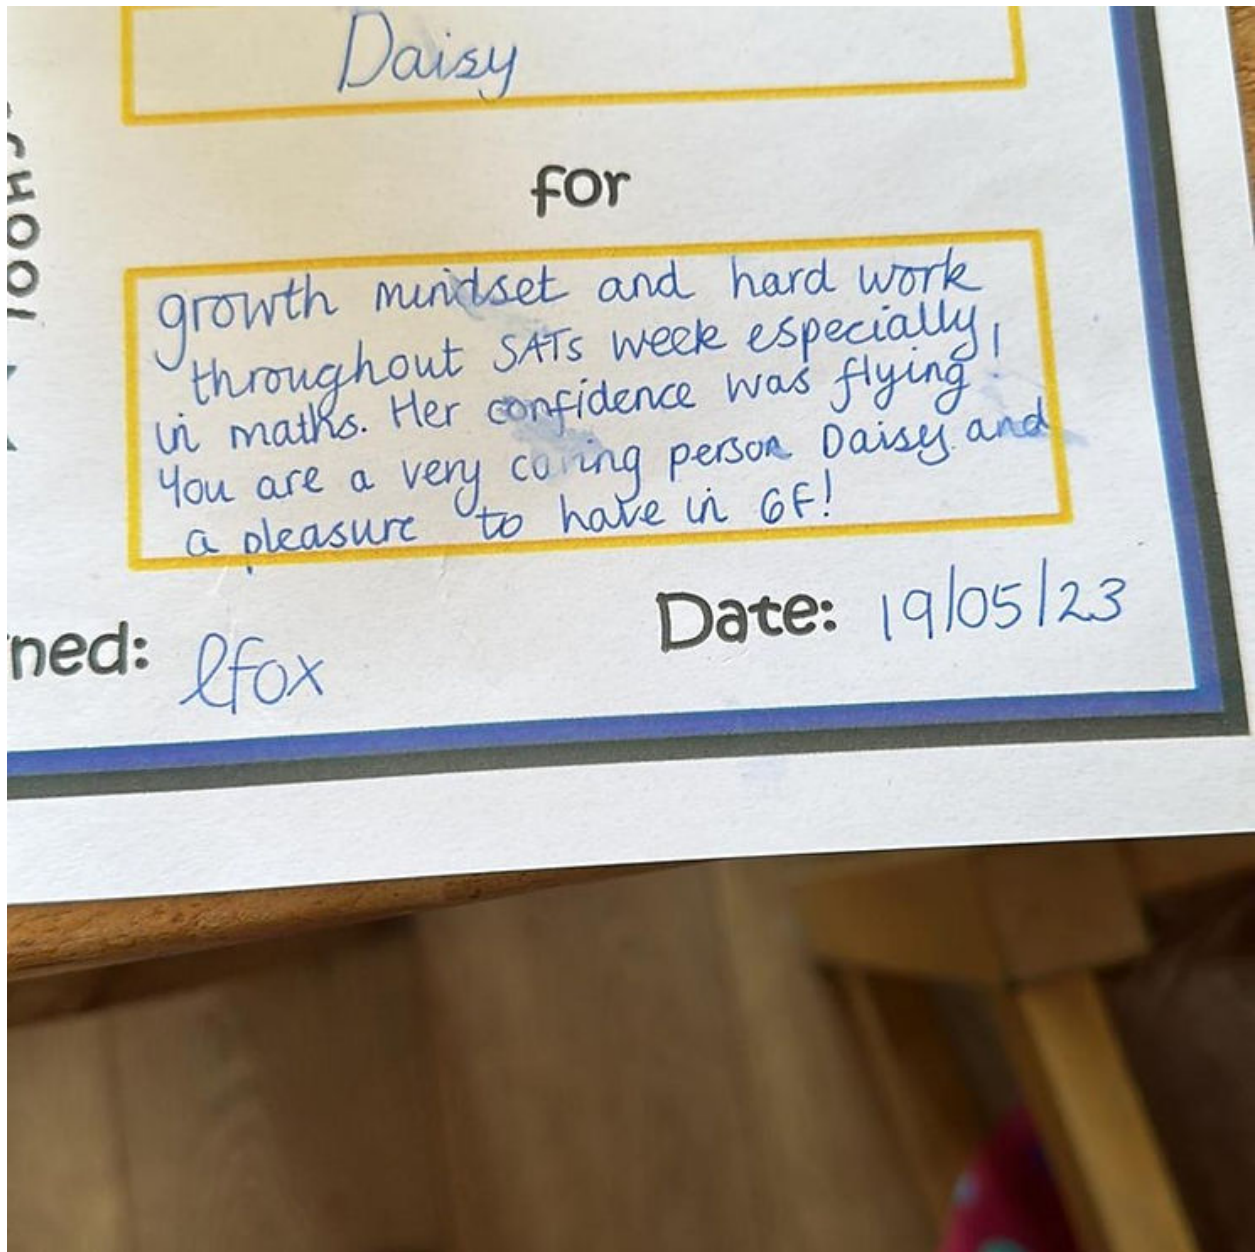 Daisy
for
growth mindset and hard work
throughout SATs week especially
in maths. Her confidence was flying!
You are a very caring person Daisy and
a pleasure to have in 6F!
ned: lfox
Date: 19/05/23